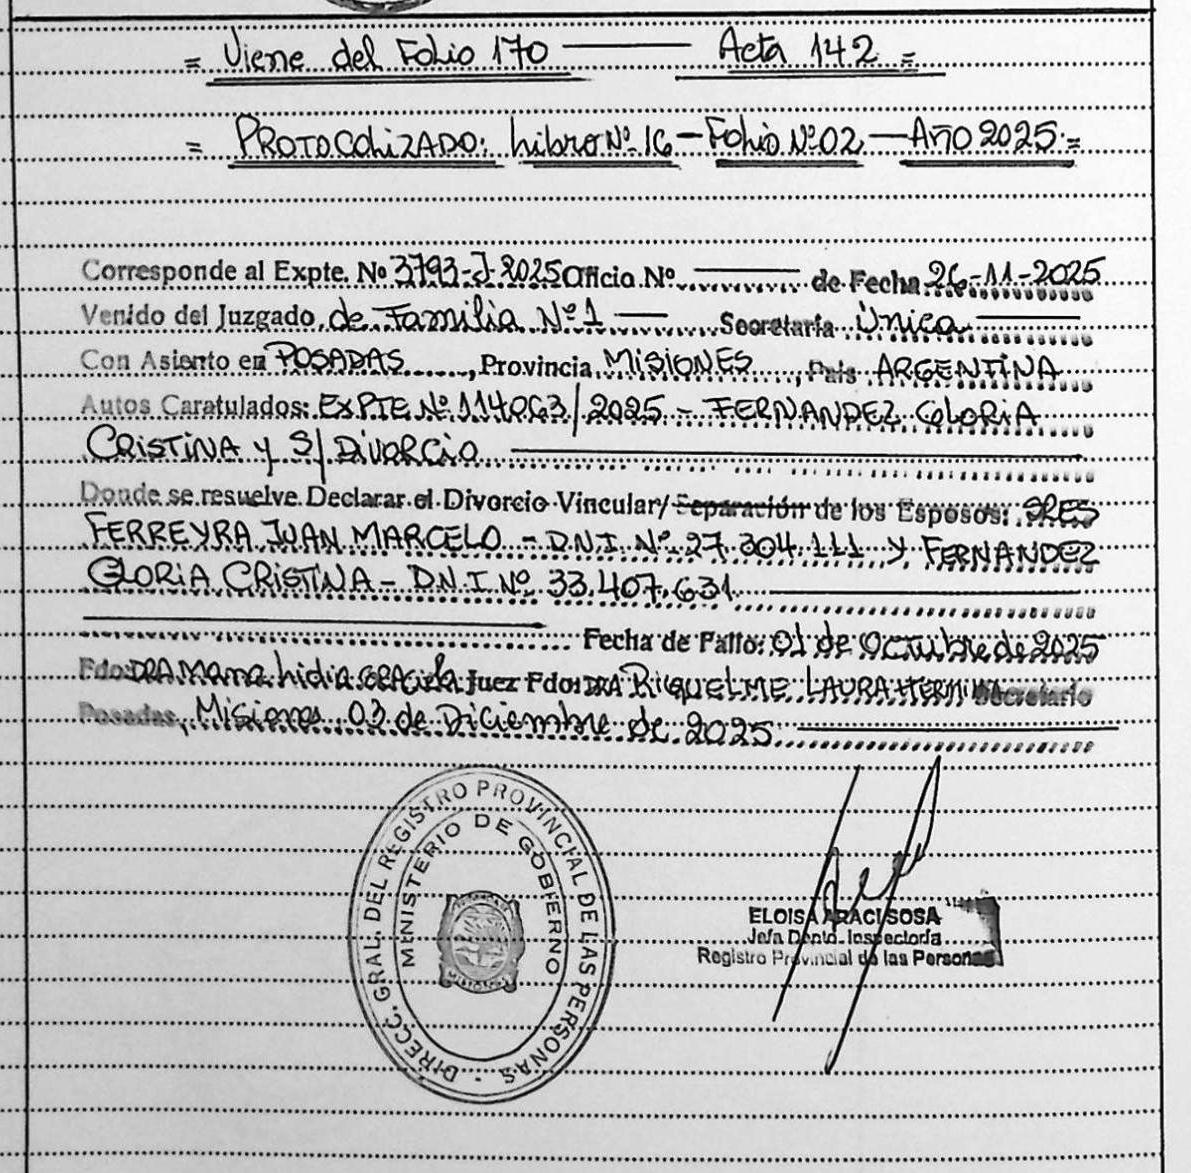 = Viene del Folio 170 — Acta 142 =
= PROTOCOLIZADO: Libro Nº 16 — Folio Nº 02 — AÑO 2025 =
Corresponde al Expte. Nº 3793-J-2025 Oficio Nº ——— de Fecha 26-11-2025
Venido del Juzgado de Familia Nº 1 — Secretaría Única ———
Con Asiento en POSADAS, Provincia MISIONES, País ARGENTINA
Autos Caratulados: EXPTE Nº 114063/2025 - FERNANDEZ GLORIA
CRISTINA y S/ DIVORCIO ———
Donde se resuelve Declarar el Divorcio Vincular/ Separación de los Esposos: SRES
FERREYRA JUAN MARCELO - D.N.I. Nº 27.304.111 Y FERNANDEZ
GLORIA CRISTINA - D.N.I Nº 33.407.631 ———
——— Fecha de Fallo: 01 de Octubre de 2025
Fdo: DRA Lidia GRACIELA Juez Fdo: DRA RIQUELME LAURA Secretario
Posadas, Misiones 03 de Diciembre de 2025 ———
DIRECC. GRAL. DEL REGISTRO PROVINCIAL DE LAS PERSONAS -
MINISTERIO DE GOBIERNO
MISIONES
ELOISA ARACI SOSA
Jefa Depto. Inspectoría
Registro Provincial de las Personas